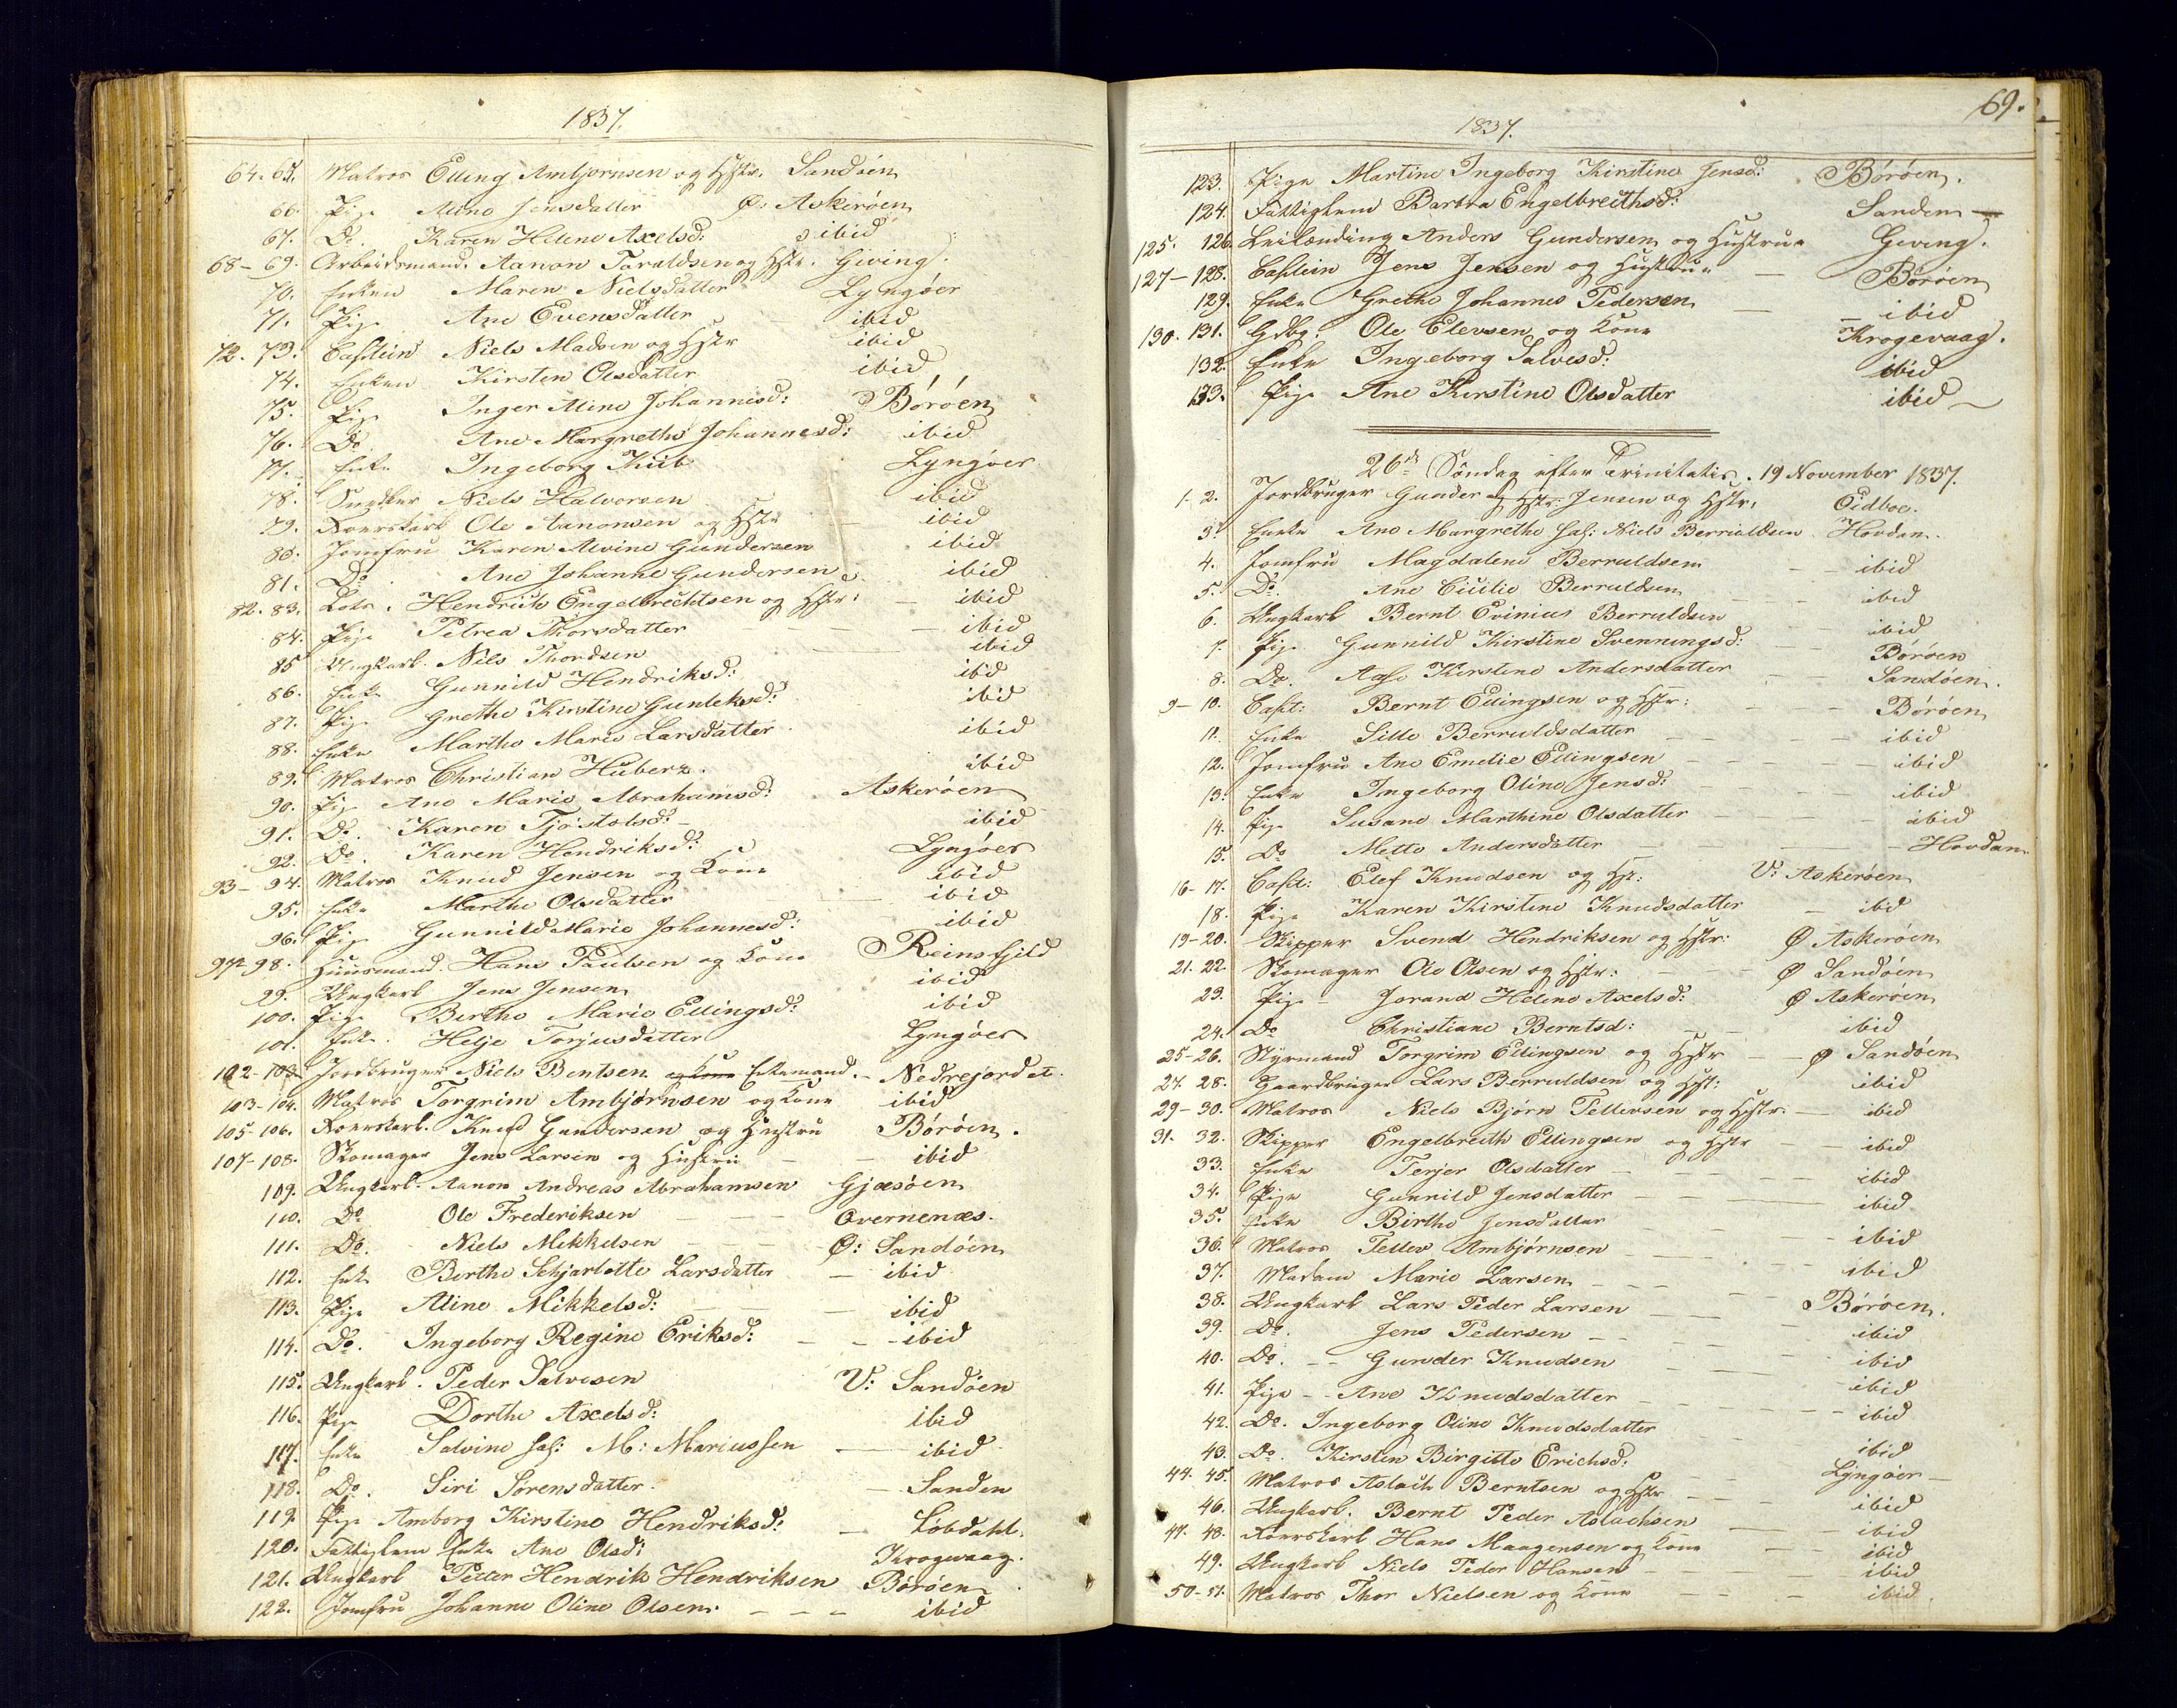 1837.
64. 65. Matros Elling Ambjørnsen og Hstr. Sandøen
66. Pige Aline Jensdatter Ø: Askerøen
67. Do. Karen Helene Axelsd: ibid
68-69. Arbeidsmand. Aanon Taraldsen og Hstr. Giving.
70. Enken Maren Nielsdatter Lyngöer
71. Pige Ane Evensdatter ibid
72. 73. Captein Niels Madsen og Hstr ibid
74. Enken Kirsten Olsdatter ibid
75. Pige Inger Aline Johannesd: Börøen
76. Do Ane Margrethe Johannesd: ibid
77. Enke Ingeborg Kiib Lyngöer
78. Snedker Niels Halvorsen ibid
79. Koerskarl Ole Aanonsen og Hstr ibid
80. Jomfru Karen Alvine Gundersen ibid
81. Do. Ane Johanne Gundersen ibid
82. 83. Lods. Hendrich Engelbrechtsen og Hstr: ibid
84. Pige Petrea Thorsdatter ibid
85 Ungkarl. Nils Thordsen ibid
86. Enke Gunnild Hendriksd: ibid
87. Pige Grethe Kirstine Gunleksd: ibid
88. Enke Marthe Marie Larsdatter ibid
89. Matros Christian Huberz. ibid
90. Pige Ane Marie Abrahamsd: Askerøen
91. Do. Karen Tjöstolsd: ibid
92. Do. Karen Hendriksd: Lyngöer
93-94. Matros Knud Jensen og Kone ibid
95. Enke Marthe Olsdatter ibid
96. Pige Gunnild Marie Johannesd: ibid
97-98. Huusmand. Hans Paulsen og Kone Reinsfjeld
99. Ungkarl Jens Jensen ibid
100. Pige Berthe Marie Ellingsd: ibid
101. Enke. Helje Torjusdatter Lyngöer
102-103 Jordbruger Niels Bentsen og Kone Enkemand. Nedrejordet.
103-104. Matros Torgrim Ambjørnsen og Kone ibid
105-106. Koerskarl. Knud Gundersen og Hustru Börøen.
107-108. Skomager Jens Larsen og Hustru ibid
109. Ungkarl. Aanon Andreas Abrahamsen Gjæsöen
110. Do Ole Frederiksen Overnenæs.
111. Do. Niels Mikkelsen Ø: Sandöen
112. Enke Berthe Schjarlotte Larsdatter ibid
113. Pige Aline Mikkelsd: ibid
114. Do. Ingeborg Regine Eriksd: ibid
115. Ungkarl. Peder Salvesen V: Sandöen
116. Pige Dorthe Axelsd: ibid
117. Enke Salvine sal: M: Mariussen ibid
118. Do. Siri Sørensdatter. Sanden
119 Pige Amborg Kirstine Hendriksd: Löbdahl.
120. Fattiglem Enke Ane Olsd: Krogevaag.
121. Ungkarl Peder Hendrik Hendriksen Börøen
122. Jomfru Johanne Oline Olsen. ibid
69.
1837.
123. Pige Martine Ingeborg Kirstine Jensd: Börøen.
124. Fattiglem Barbra Engelbrecthsd: Sanden
125. 126. Leilænding Anders Gundersen og Hustrue Geving.
127-128. Captein Jens Jensen og Hustrue Börøen
129. Enke Grethe Johannes Pedersen ibid
130. 131. Gdbg. Ole Elevsen og Kone Krogevaag.
132. Enke Ingeborg Salvesd: ibid
133. Pige Ane Kirstine Olsdatter ibid
26de Söndag efter Trinitatis. 19 November 1837.
1. 2. Jordbruger Gunder og Hstr. Jensen og Hstr. Eidboe.
3. Enke Ane Margrethe sal: Niels Berruldsen Hovdan.
4. Jomfru Magdalene Berruldsen ibid
5. Do. Ane Cicilie Berruldsen ibid
6. Ungkarl Bernt Evinius Berruldsen ibid
7. Pige Gunnild Kirstine Svenningsd: Börøen
8. Do. Aase Kirstine Andersdatter Sandöen.
9-10. Capt: Bernt Ellingsen og Hstr: Börøen
11. Enke Sille Berruldsdatter ibid
12. Jomfru Ane Emelie Ellingsen ibid
13. Enke Ingeborg Oline Jensd: ibid
14. Pige Susane Marthine Olsdatter ibid
15. Do Mette Andersdatter Hovdan
16-17. Capt: Elef Knudsen og Hst: V: Askerøen
18. Pige Karen Kirstine Knudsdatter ibid
19-20. Skipper Svend Hendriksen og Hstr: Ø Askerøen
21-22. Skomager Ole Olsen og Hstr: Ø Sandöen
23. Pige Jorand Helene Axelsd: Ø Askerøen
24. Do Christiane Berntsd: ibid
25-26. Styrmand Torgrim Ellingsen og Hstr Ø Sandöen
27. 28. Gaardbruger Lars Berruldsen og Hst: ibid
29-30. Matros Niels Bjørn Tellevsen og Hstr. ibid
31. 32. Skipper Engelbreth Ellingsen og Hstr ibid
33. Enke Terjer Olsdatter ibid
34. Pige Gunnild Jensdatter ibid
35. Enke Birthe Jensdatter ibid
36. Matros Tellev Ambjørnsen ibid
37. Madam Marie Larsen ibid
38. Ungkarl Lars Peder Larsen Börøen.
39. Do. Jens Pedersen ibid
40. Do. Gunder Knudsen ibid
41. Pige Ane Knudsdatter ibid
42. Do. Ingeborg Oline Knudsdatter ibid
43. Do. Kirsten Birgitte Erichsd. ibid
44. 45. Matros Aslach Berntsen og Hstr Lyngöer
46. Ungkarl. Bernt Peder Aslachsen ibid
47. 48. Koerskarl Hans Maagensen og Kone ibid
49. Ungkarl Niels Peder Hansen ibid
50-51. Matros Thor Nielsen og Kone ibid
ibid